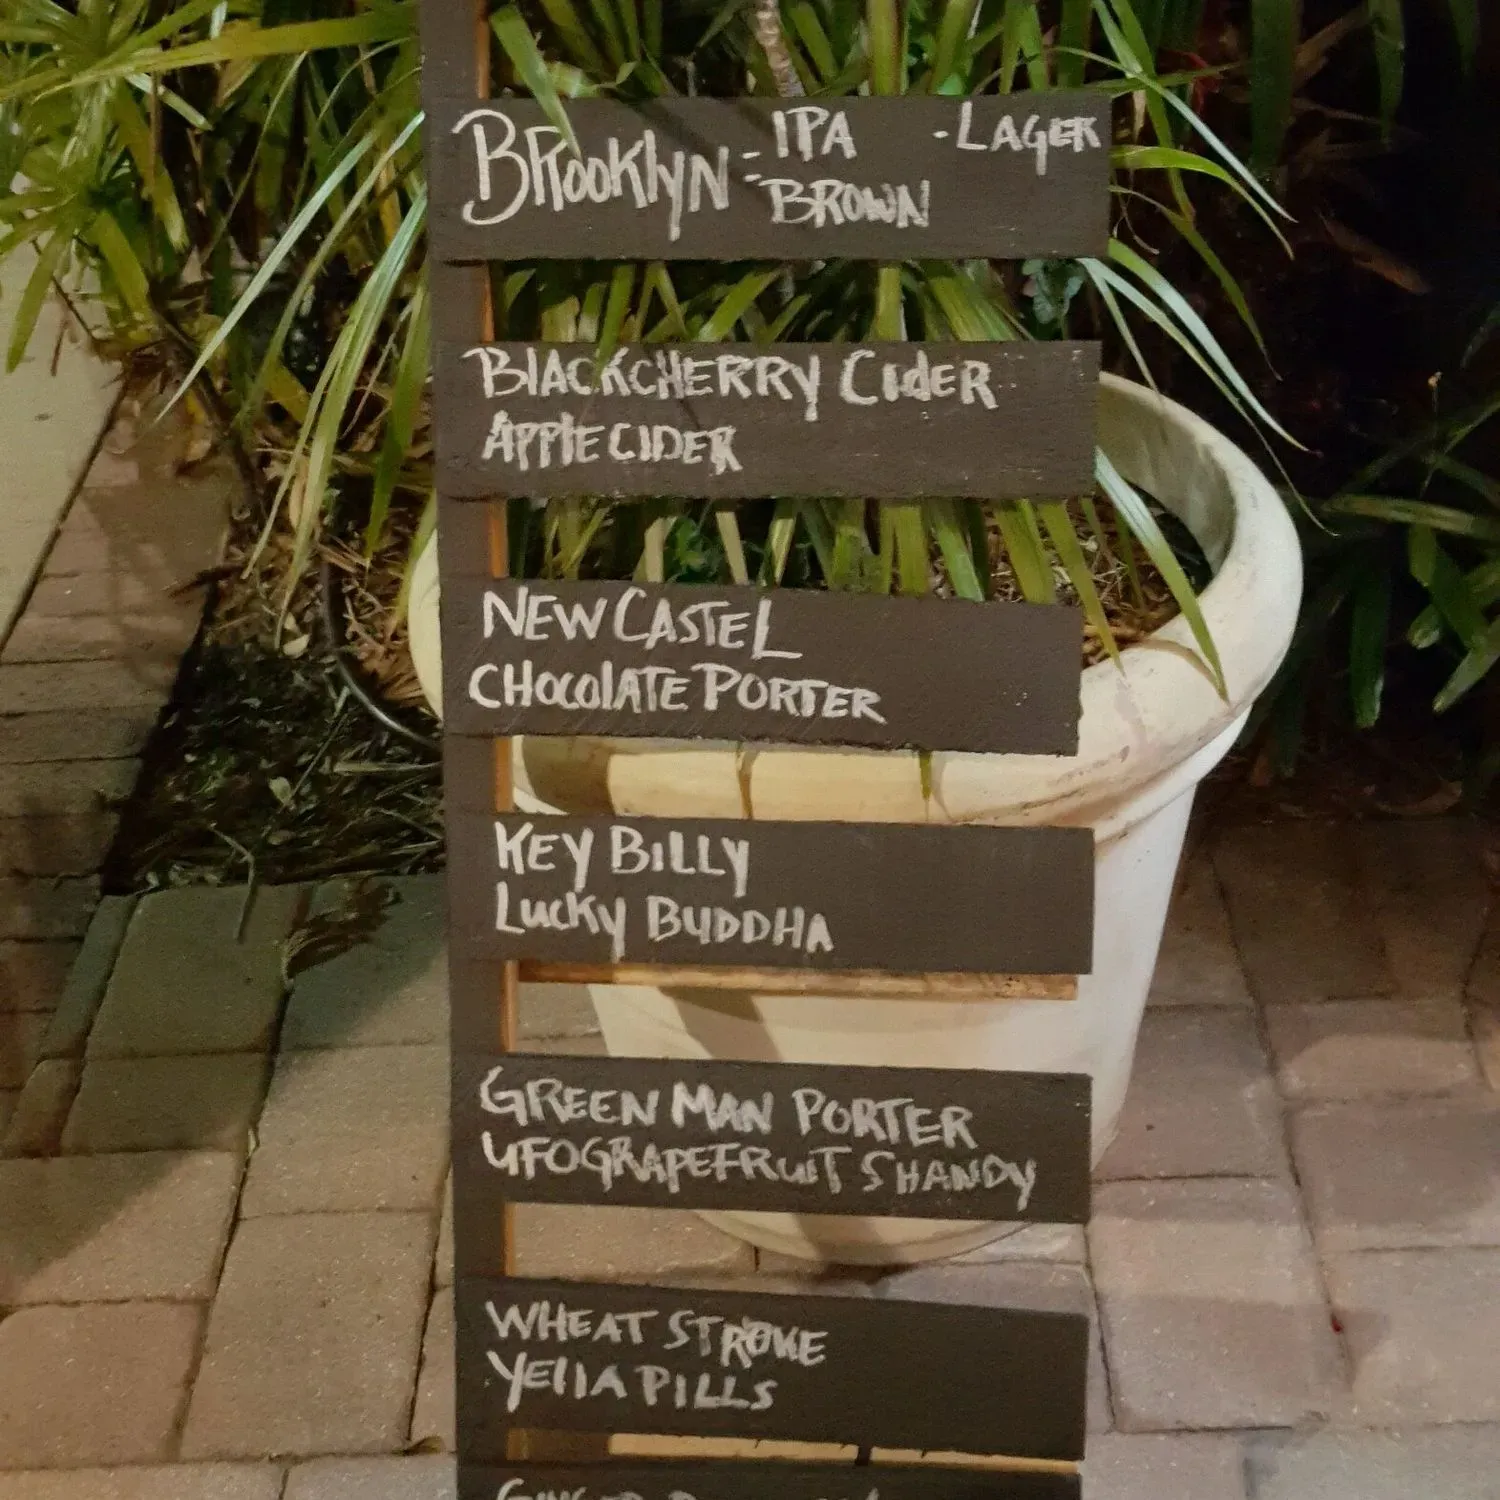 BROOKLYN - IPA - LAGER
- BROWN
BLACKCHERRY CIDER
APPLE CIDER
NEW CASTEL
CHOCOLATE PORTER
KEY BILLY
LUCKY BUDDHA
GREEN MAN PORTER
UFO GRAPEFRUIT SHANDY
WHEAT STROKE
YELLA PILLS
GINGER